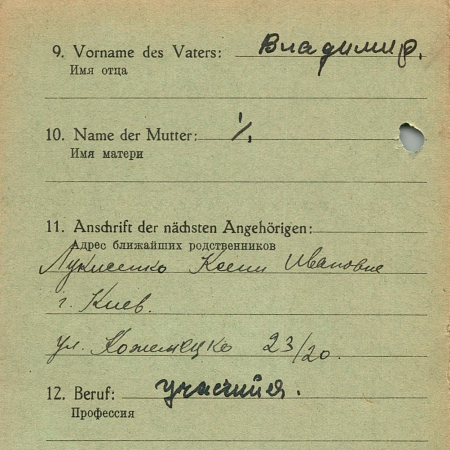 9. Vorname des Vaters: Владимир.
Имя отца
10. Name der Mutter: ⁒
Имя матери
11. Anschrift der nächsten Angehörigen:
Адрес ближайших родственников
Ивановне
г. Киев.
ул. 23/20.
12. Beruf: учащийся.
Профессия